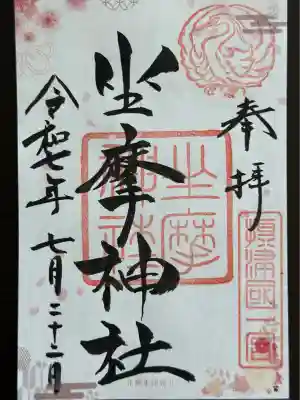 奉拝
摂津国一之宮
坐摩神社
坐摩神社
令和七年 七月二十二日